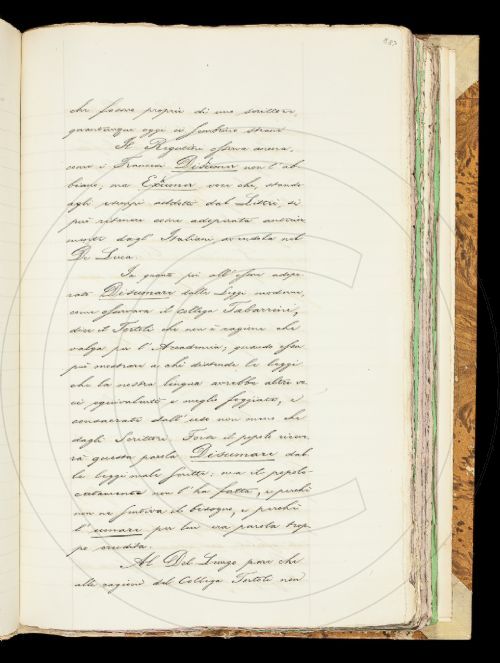 che fosse proprio di uno scrittore,
quantunque oggi ci sembrino strani
Il Rigutini osserva ancora,
come i Francesi Disumer non l'ab-
biano; ma Exhumer voce che, stando
agli esempi addotti dal Littré, si
può ritenere come adoperata anterior
mente dagl'Italiani, avendola nel
De Luca.
In quanto poi all'esser adope
rato Disumare dalle Leggi moderne,
come osservava il Collega Tabarrini,
dice il Tortoli che non è ragione che
valga per l'Accademia; quando essa
può mostrare a chi distende le leggi
che la nostra lingua avrebbe altre vo
ci equivalenti e meglio foggiate, e
consacrate dall'uso non meno che
dagli Scrittori. Forse il popolo riceve
rà questa parola Disumare dal
le leggi male scritte: ma il popolo
certamente non l'ha fatta, e perché
non ne sentiva il bisogno, e perché
l'umare per lui era parola trop
po erudita.
Al Del Lungo pare che
alle ragioni del Collega Tortoli non